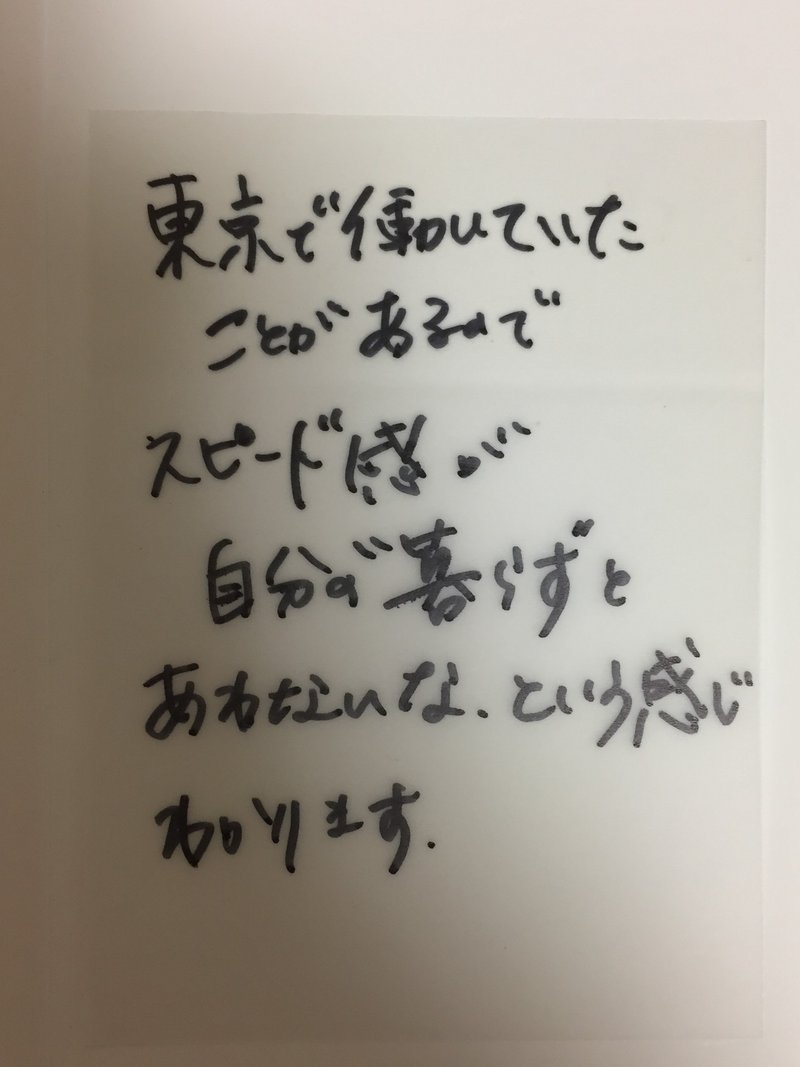 東京で働いていた
ことがあるので
スピード感が
自分が暮らずと
あわないな.という感じ
わかります.